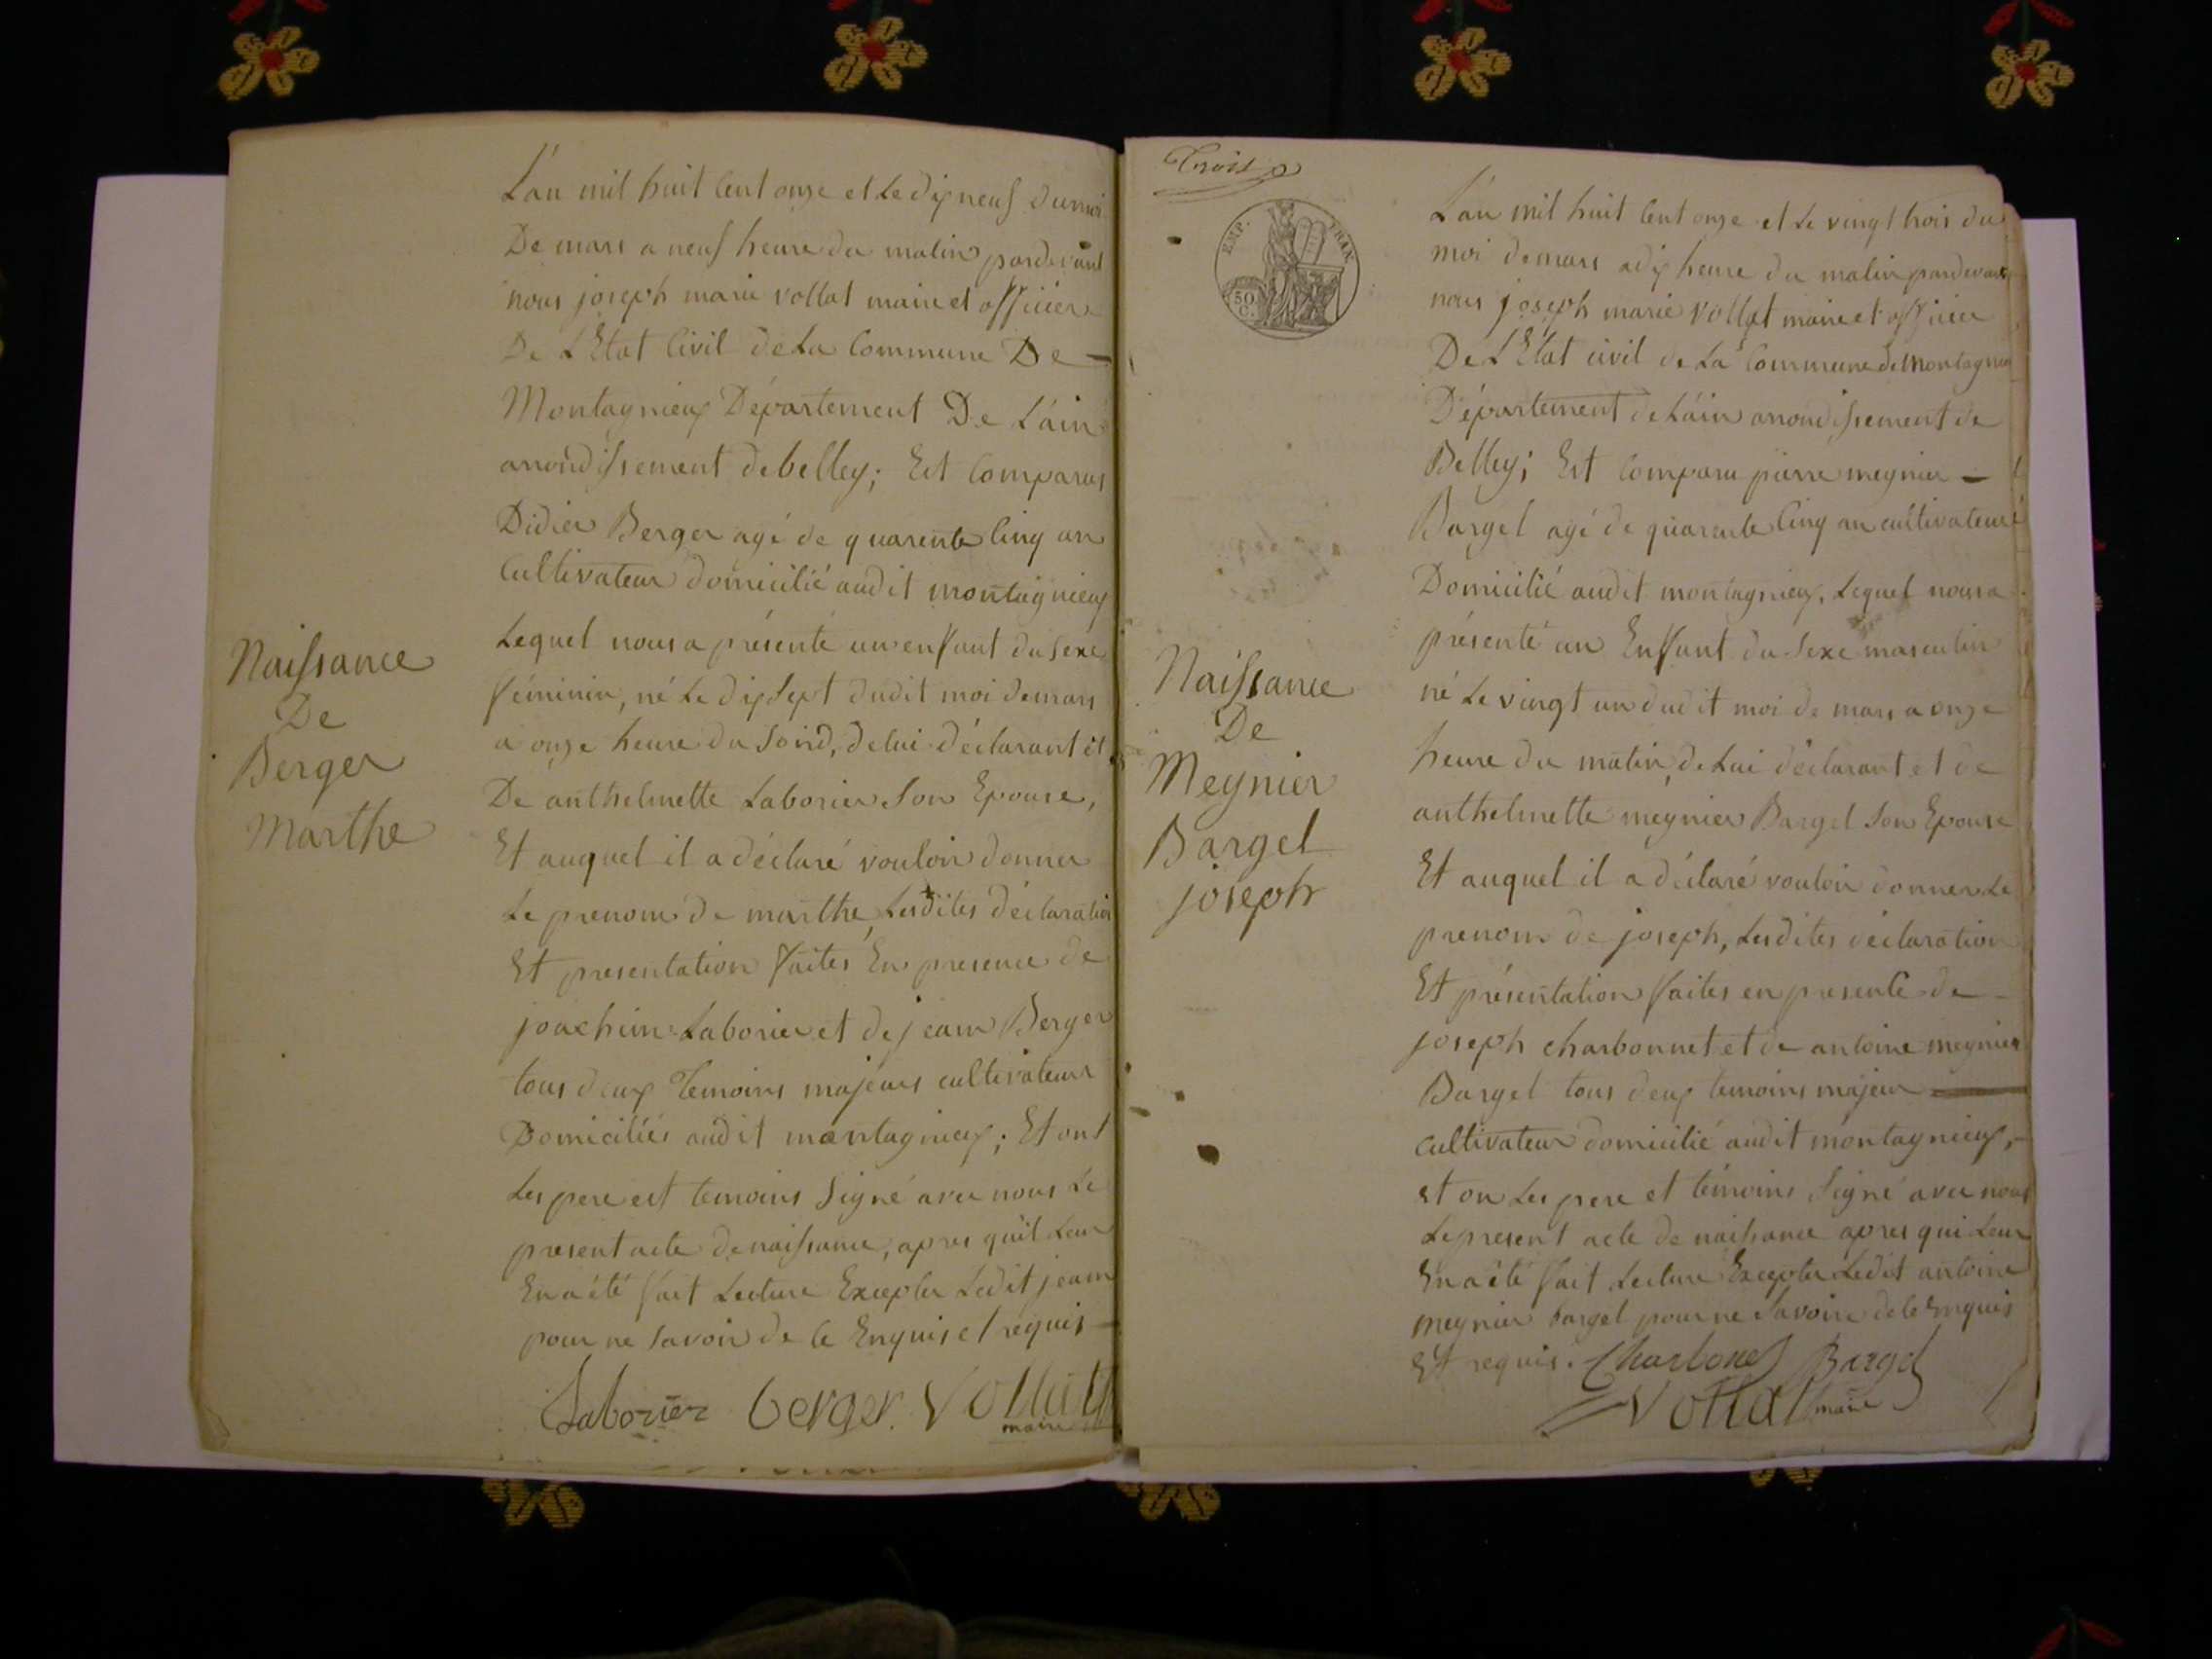 L'an mil huit Cent onze et Le dix neuf du moi
De mars a neuf heure du matin pardevant
nous joseph marie vollat maire et officier
De L'Etat Civil de La Commune De
Montagnieux Département De L'ain
arrondissement de belley; Est Comparus
Didier Berger agé de quarente Cinq an
Cultivateur domicilié audit montagnieux
Lequel nous a présenté un enfant du sexe
féminin, né Le dix sept dudit moi de mars
a onze heure du soird, de lui déclarant et
De anthelmette Laborier Son Epouse,
Et auquel il a déclaré vouloir donner
Le prenom de marthe, Lesdites déclaration
Et presentation faites En presence de
joachim Laborier et de jeam Berger
tous deux Temoins majeurs cultivateurs
Domiciliés audit montagnieux; Et ont
Les pere et temoins Signé avec nous Le
present acte de naissance, apres qu'il Leur
En a été fait Lecture Excepter Ledit jeam
pour ne Savoir de Ce Enquis et requis
Laborier berger. Vollat
maire
Naissance
De
Berger
Marthe
Trois
EMP. FRAN.
50
C.
L'an mil huit Cent onze et Le vingt trois du
moi de mars a dix heure du matin pardevant
nous joseph marie vollat maire et officier
De L'Etat civil de La Commune de Montagnieux
Département de L'ain arrondissement de
Belley; Est Comparu pierre meynier
Bargel agé de quarente Cinq an cultivateur
Domicilié audit montagnieux, Lequel nous a
présenté un Enfant du Sexe masculin
né Le vingt un dudit moi de mars a onze
heure du matin, de Lui déclarant et de
anthelmette meynier Bargel Son Epouse
Et auquel il a déclaré vouloir donner Le
prenom de joseph, Lesdites déclaration
Et présentation faites en presente de
joseph charbonnet et de antoine meynier
Bargel tous deux temoins majeur
cultivateur domicilié audit montagnieux,
et on Les pere et témoins Signé avec nous
Le present acte de naissance apres qui Leur
En a été fait Lecture Excepter Ledit antoine
meynier bargel pour ne Savoire de Ce Enquis
Et requis. Charbonet Bargel
Vollat maire
Naissance
De
Meynier
Bargel
joseph